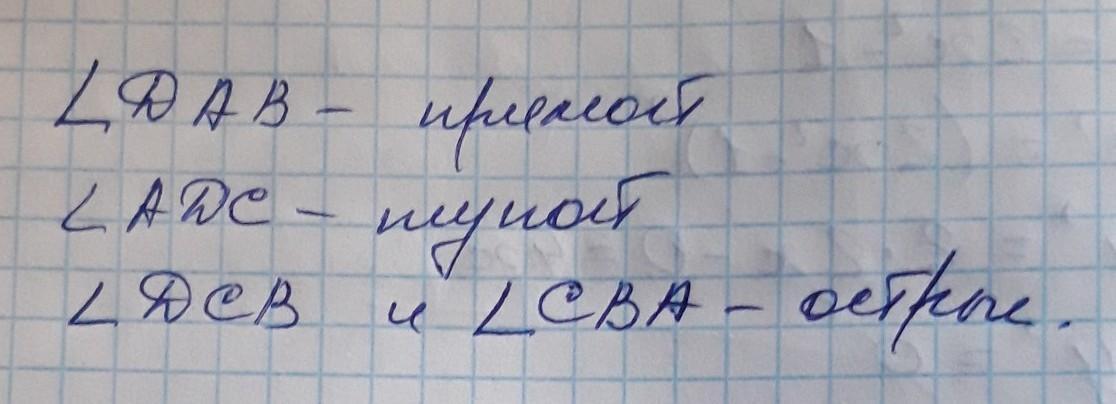 ∠DAB – прямой
∠ADC – тупой
∠DCB и ∠CBA – острые.